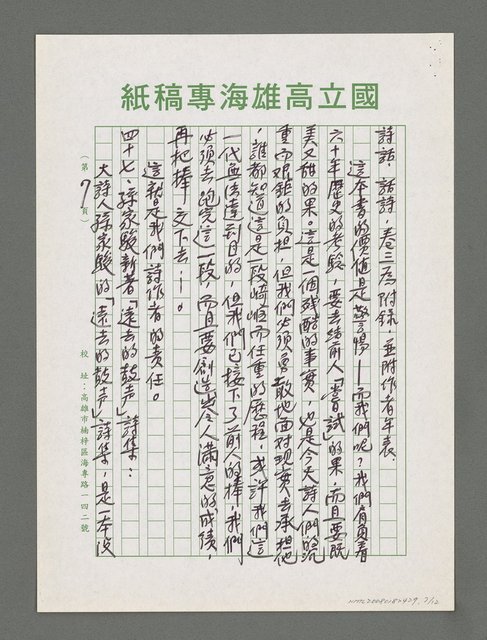 國立高雄海專專稿紙
詩話、話詩，卷三為附錄，並附作者年表。
這本書的價值是警惕——而我們呢？我們肩負着
六十年歷史的考驗，要去結前人「嘗試」的果，而且要既
美又甜的果。這是一個殘酷的事實，也是今天詩人們的沉
重而艱鉅的負担，但我們必須勇敢地面对現實去承担他
，誰都知道這是一段崎嶇而任重的歷程，或許我們這
一代無法達到目的，但我們已接下了前人的棒，我們
必須去跑完這一段，而且要創造出令人滿意的成績，
再把棒交下去……。
這就是我們詩作者的責任。
四十七、孫家駿新著「遠去的鼓声」詩集：
大詩人孫家駿的「遠去的鼓声」詩集，是一本没
（第 7 頁）
校 址：高雄市楠梓區海專路一四二號